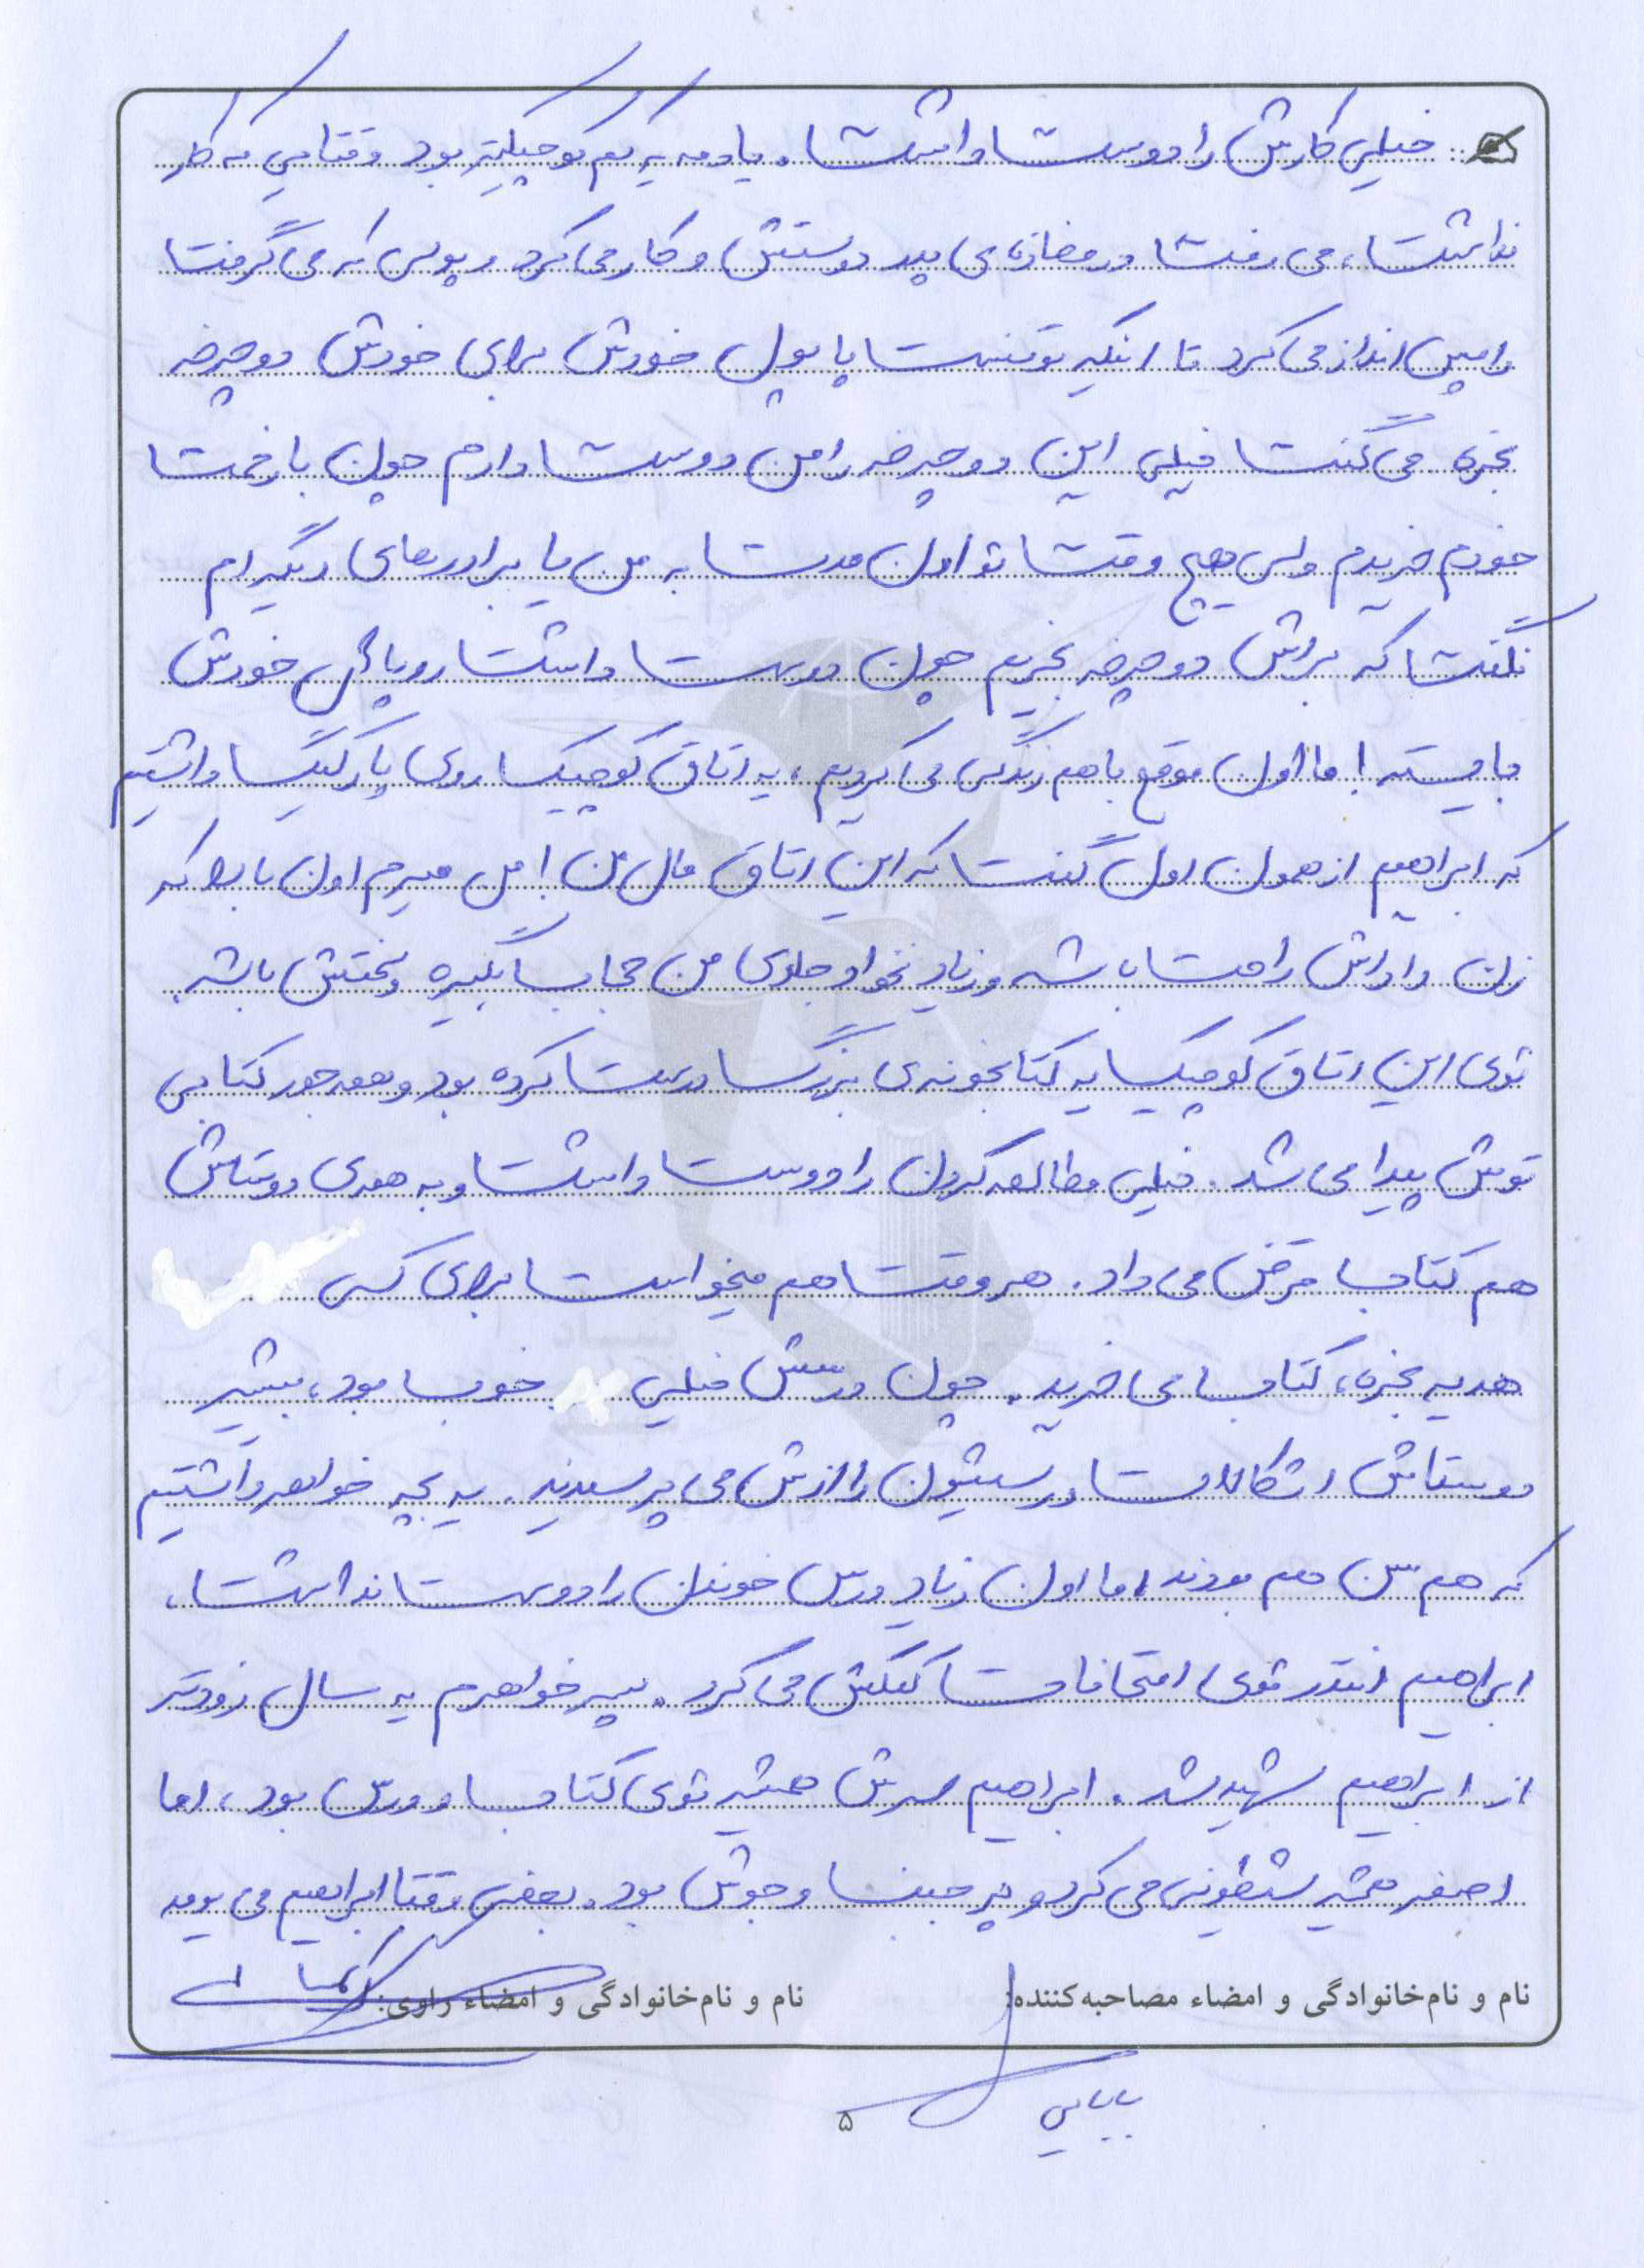 خیلی کارش را دوست داشت. یادمه یه کم کوچیکتر بود وقتایی که کار
نداشت، می رفت در مغازه ی پدر دوستش و کار می کرد و پولی که می گرفت
را پس انداز می کرد تا اینکه تونست با پول خودش برای خودش دوچرخه
بخره می گفت خیلی این دوچرخه را من دوست دارم چون با زحمت
خودم خریدم ولی هیچ وقت تو اون مدت به من یا برادرهای دیگه ام
نگفت که براش دوچرخه بخریم چون دوست داشت رو پای خودش
بایسته! ما اون موقع با هم زندگی می کردیم، یه اتاق کوچیک روی پارکینگ داشتیم
که ابراهیم از همون اول گفت که این اتاق مال من! من میرم اون بالا که
زن داداش راحت باشه و زیاد نخواد جلوی من حجاب بگیره و سختش باشه.
توی این اتاق کوچیک یه کتابخونه ی بزرگ درست کرده بود و همه جور کتابی
توش پیدا می شد. خیلی مطالعه کردن را دوست داشت و به همه ی دوستاش
هم کتاب قرض می داد. هر وقت هم میخواست برای کسی
هدیه بخره، کتاب می خرید. چون درسش خیلی خوب بود، بیشتر
دوستاش اشکالات درسیشون را ازش می پرسیدند. یه بچه خواهر داشتیم
که هم سن هم بودند اما اون زیاد درس خوندن را دوست نداشت،
ابراهیم انقدر توی امتحانات کمکش می کرد. پسر خواهرم یه سال زودتر
از ابراهیم شهید شد. ابراهیم سرش همیشه توی کتاب و درس بود، اما
اصغر همیشه شیطونی می کرد و پر جنب و جوش بود. بعضی وقتا ابراهیم می یومد
نام و نام‌خانوادگی و امضاء مصاحبه‌کننده:
نام و نام‌خانوادگی و امضاء راوی:
بابایی
۵